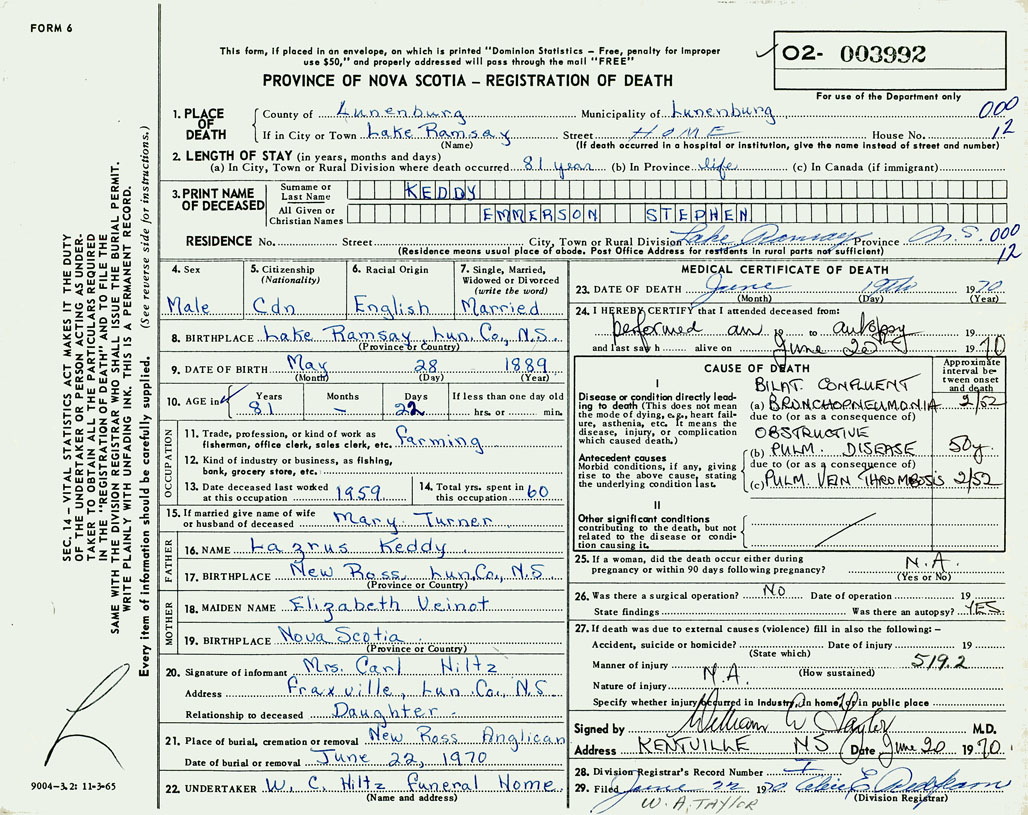 FORM 6
This form, if placed in an envelope, on which is printed "Dominion Statistics – Free, penalty for improper
use $50," and properly addressed will pass through the mail "FREE"
PROVINCE OF NOVA SCOTIA – REGISTRATION OF DEATH
02- 003992
For use of the Department only
1. PLACE OF DEATH
County of Lunenburg Municipality of Lunenburg 000
If in City or Town Lake Ramsay Street HOME House No. 12
(Name) (If death occurred in a hospital or institution, give the name instead of street and number)
2. LENGTH OF STAY (in years, months and days)
(a) In City, Town or Rural Division where death occurred 81 year (b) In Province life (c) In Canada (if immigrant)
3. PRINT NAME OF DECEASED
Surname or Last Name KEDDY
All Given or Christian Names EMMERSON STEPHEN
RESIDENCE No. Street City, Town or Rural Division Lake Ramsay Province N.S. 000
(Residence means usual place of abode. Post Office Address for residents in rural parts not sufficient) 12
4. Sex
Male
5. Citizenship
(Nationality)
Cdn
6. Racial Origin
English
7. Single, Married,
Widowed or Divorced
(write the word)
Married
8. BIRTHPLACE Lake Ramsay, Lun. Co., N.S.
(Province or Country)
9. DATE OF BIRTH May 28 1889
(Month) (Day) (Year)
10. AGE in Years Months Days If less than one day old
81 – 22 hrs. or min.
OCCUPATION
11. Trade, profession, or kind of work as
fisherman, office clerk, sales clerk, etc. farming
12. Kind of industry or business, as fishing,
bank, grocery store, etc.
13. Date deceased last worked
at this occupation 1959
14. Total yrs. spent in
this occupation 60
15. If married give name of wife
or husband of deceased Mary Turner
FATHER
16. NAME Lazrus Keddy
17. BIRTHPLACE New Ross, Lun. Co., N.S.
(Province or Country)
MOTHER
18. MAIDEN NAME Elizabeth Veinot
19. BIRTHPLACE Nova Scotia
(Province or Country)
20. Signature of informant Mrs. Carl Hiltz
Address Fraxville, Lun. Co., N.S
Relationship to deceased Daughter
21. Place of burial, cremation or removal New Ross Anglican
Date of burial or removal June 22, 1970
22. UNDERTAKER W. C. Hiltz Funeral Home
(Name and address)
MEDICAL CERTIFICATE OF DEATH
23. DATE OF DEATH June 19th 1970
(Month) (Day) (Year)
24. I HEREBY CERTIFY that I attended deceased from:
performed an 19 to autopsy 19
and last saw h alive on June 20th 1970
CAUSE OF DEATH
Approximate
interval be-
tween onset
and death
I
Disease or condition directly lead-
ing to death (This does not mean
the mode of dying, e.g., heart fail-
ure, asthenia, etc. It means the
disease, injury, or complication
which caused death.)
BILAT. CONFLUENT
(a) BRONCHOPNEUMONIA 2/52
due to (or as a consequence of)
OBSTRUCTIVE
Antecedent causes
Morbid conditions, if any, giving
rise to the above cause, stating
the underlying condition last.
(b) PULM. DISEASE 50y
due to (or as a consequence of)
(c) PULM. VEIN THROMBOSIS 2/52
II
Other significant conditions
contributing to the death, but not
related to the disease or condi-
tion causing it.
25. If a woman, did the death occur either during
pregnancy or within 90 days following pregnancy? N.A.
(Yes or No)
26. Was there a surgical operation? NO Date of operation 19
State findings Was there an autopsy? YES
27. If death was due to external causes (violence) fill in also the following:–
Accident, suicide or homicide? Date of injury 19
(State which) 519.2
Manner of injury (How sustained)
N.A.
Nature of injury
Specify whether injury occurred in Industry, in home, or in public place
Signed by William W Taylor M.D.
Address KENTVILLE NS Date June 20 1970
28. Division Registrar's Record Number
29. Filed June 22 1970
(Division Registrar)
W. A. TAYLOR
SEC. 14 – VITAL STATISTICS ACT MAKES IT THE DUTY
OF THE UNDERTAKER OR PERSON ACTING AS UNDER-
TAKER TO OBTAIN ALL THE PARTICULARS REQUIRED
IN THE "REGISTRATION OF DEATH" AND TO FILE THE
SAME WITH THE DIVISION REGISTRAR WHO SHALL ISSUE THE BURIAL PERMIT.
WRITE PLAINLY WITH UNFADING INK. THIS IS A PERMANENT RECORD.
Every item of information should be carefully supplied. (See reverse side for instructions.)
9004–3.2: 11-3-65